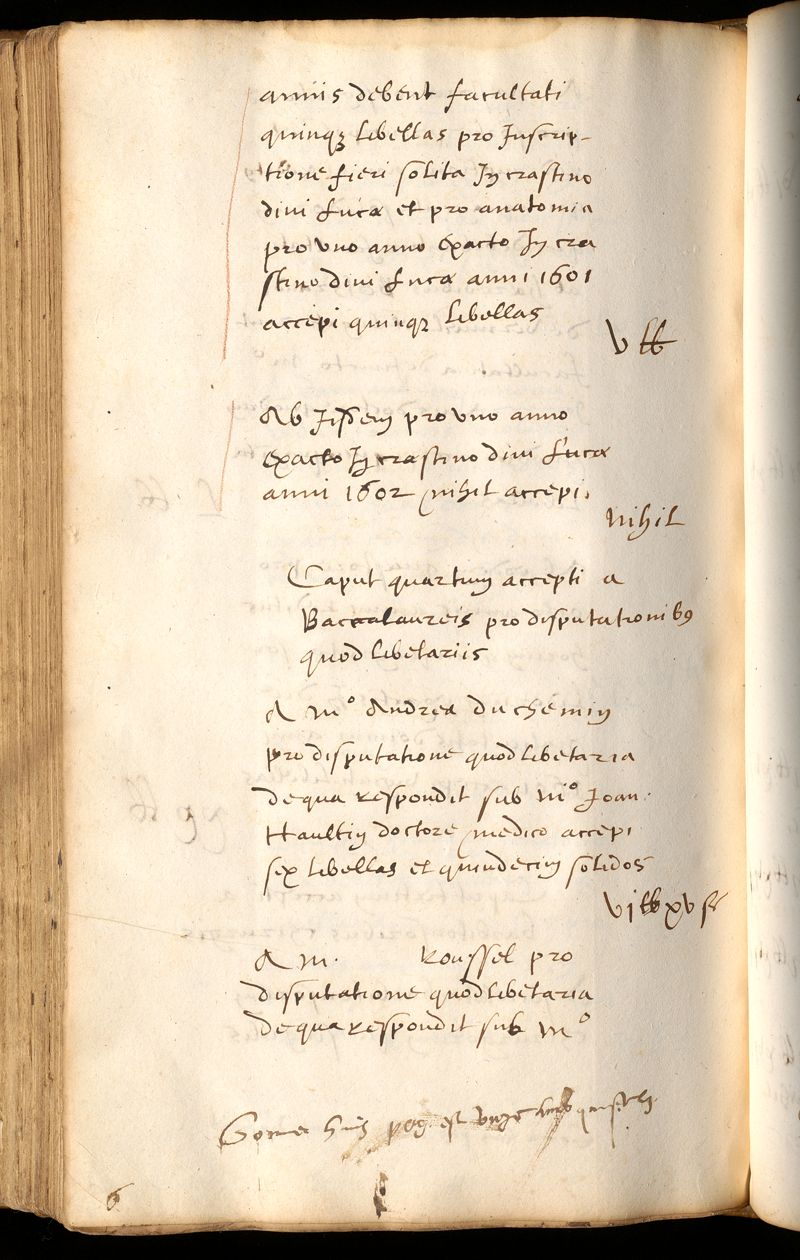 annis debent facultati
quinq; libellas pro Inscrip-
tione fieri solita In crastino
divi Lucæ et pro anatomia
pro uno anno exacto In cra
stino divi Lucæ anni 1601
accepi quinq; libellas
v lb
Ab Iisdem pro uno anno
exacto In crastino divi Lucæ
anni 1602 nihil accepi.
nihil
Caput quartum accepti a
Baccalaureis pro disputationib9
quodlibetariis
A Mº Andrea du chemin
pro disputatione quodlibetaria
de qua respondit sub Mº Joan.
Haultin doctore medico accepi
sex libellas et quindecim solidos
vj lb xv s
A M. Roussel pro
disputatione quodlibetaria
de qua respondit sub Mº
pag. est
6